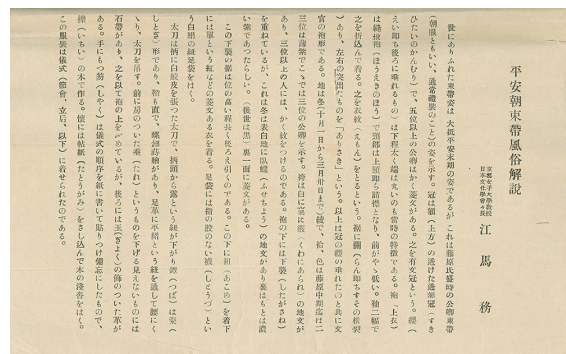 平安朝束帯風俗解説
京都女子大學教授
日本文化學會會長
江馬務
世にありふれた束帯姿は大抵平安末期の姿であるが これは藤原氏盛時の公卿束帯
(朝服ともいい、通常禮裝のこと)の姿を示す。冠は額(上方)の透けた透額冠(すき
ひたいのかんむり)で、五位以上の公卿はかく菱文がある。之を有文冠という。纓(
えい即ち後ろに垂れるもの)は下程太く端は丸いのも當時の特徴である。袍(上衣)
は縫腋袍(ほうえきのほう)で頸部は上頸即ち詰襟となり、前がやゝ低い。袖二幅で
之を折込んで着る。之を衣紋(えもん)をとるという。裾に襴(らん即ちすその横裂
)あり、左右の突出たものを「ありさき」という。以上は冠の纓の垂れたのと共に文
官の袍形である。地は冬(十月一日から三月卅日まで)綾で、袷、色は藤原中期迄は二
三位は薄紫でこゝでは三位の公卿を示す。袴は白に窠に霰(くわにあられ)の地文が
あり、三位以上の人には、かく紋をつけるのである。袍の下には下襲(したがさね)
を重ねているが、これは冬は表白地に臥蝶(ふせちよう)の地文があり裏はもとは濃
い紫であつたらしい。(後世は黒)裏一面に菱文がある。
この下襲の裾は位の高い程長く後ろえ引くのである。この下に衵(あこめ)を着下
には單という紅などの菱文ある衣を着る。足袋には指の股のない襪(しとうづ)とい
う白絹の縫足袋をはく。
太刀は柄に白鮫皮を張つた太刀で、柄頭から露という紐が下がり鐔(つばは)は粢(
しとぎ)形であり、鞘も直で、螺鈿蒔繪があり、足革に平緒という紐を通して腰にく
ゝり、太刀を吊す。前に房のついた垂(たれ)というものを下げる見えないものには
石帯があり、之を以て袍の上を〆めているが、後ろには玉(ぎよく)の飾のついた革が
ある。手にもつ笏(しやく)は儀式の順序を紙に書いて貼りつけ備忘にしたもので、
櫟(いちい)の木で作る。懷には帖紙(たとうがみ)をさし込んで木の淺沓をはく。
この服装は儀式(節會、立后、以下)に着せられたのである。